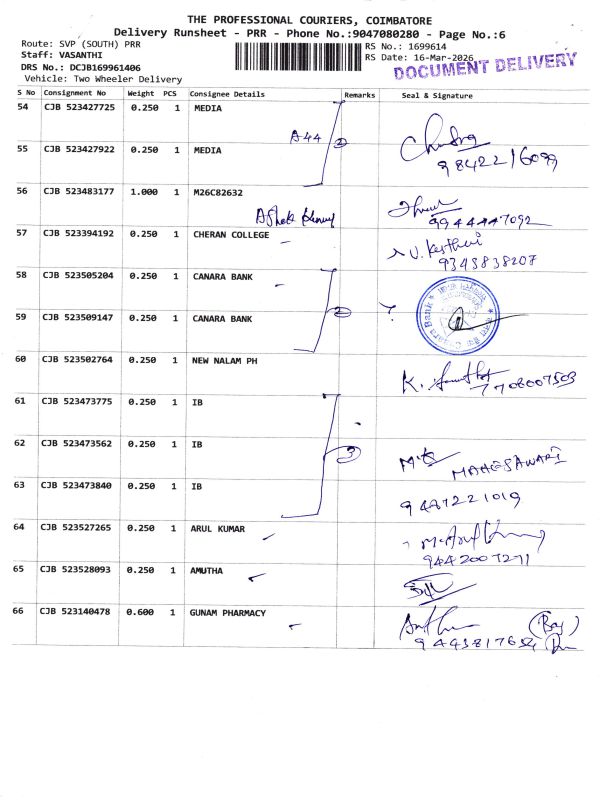 THE PROFESSIONAL COURIERS, COIMBATORE
Delivery Runsheet - PRR - Phone No.:9047080280 - Page No.:6
Route: SVP (SOUTH) PRR
Staff: VASANTHI
DRS No.: DCJB169961406
Vehicle: Two Wheeler Delivery
RS No.: 1699614
RS Date: 16-Mar-2026
DOCUMENT DELIVERY
S No Consignment No Weight PCS Consignee Details Remarks Seal & Signature
54 CJB 523427725 0.250 1 MEDIA
A44 2
55 CJB 523427922 0.250 1 MEDIA
9842216099
56 CJB 523483177 1.000 1 M26C82632
9944447092
57 CJB 523394192 0.250 1 CHERAN COLLEGE
9345838207
58 CJB 523505204 0.250 1 CANARA BANK
2
Canara Bank
59 CJB 523509147 0.250 1 CANARA BANK
60 CJB 523502764 0.250 1 NEW NALAM PH
7708007503
61 CJB 523473775 0.250 1 IB
62 CJB 523473562 0.250 1 IB
3 MAHESAWARI
63 CJB 523473840 0.250 1 IB
9487221019
64 CJB 523527265 0.250 1 ARUL KUMAR
65 CJB 523528093 0.250 1 AMUTHA
66 CJB 523140478 0.600 1 GUNAM PHARMACY